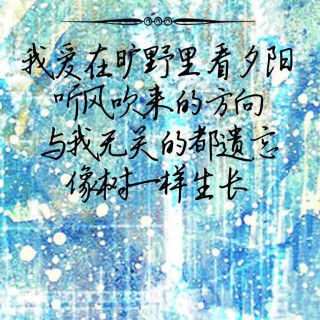 我爱在旷野里看夕阳
听风吹来的方向
与我无关的都遗忘
像树一样生长